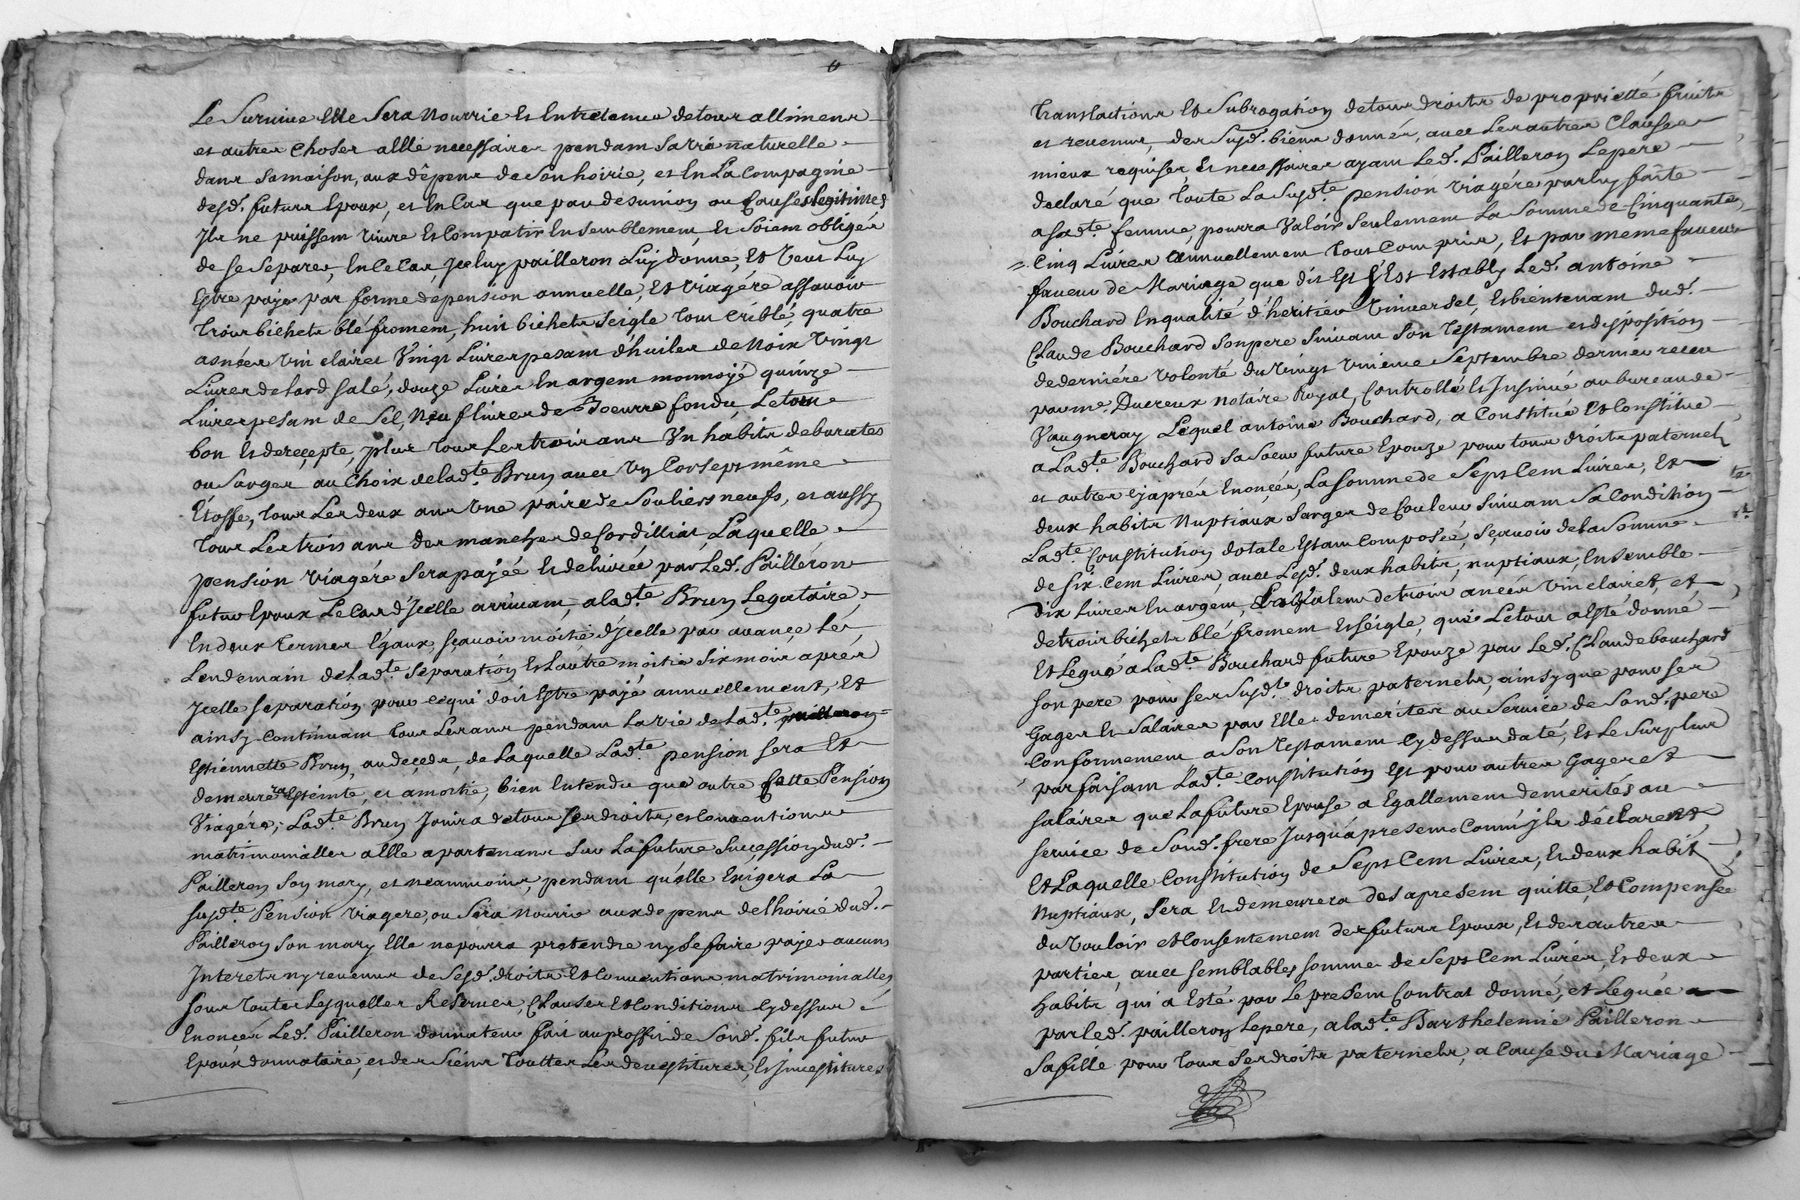 Le Survive elle sera nourrie et Entretenue de tous allimens
et autres choses a Elle necessaires pendant sa vie naturelle
dans sa maison, aux dêpens de son hoirie, et En La Compagnie
desd. futurs Epoux, et En Cas que par desunion ou Causes legitimes
Ils ne puissent vivre Et Compatir Ensemblement, Et soient obligés
de se separer, En Ce Cas Jceluy pailleron Luy donne, Et veut Luy
Estre payé par forme de pension annuelle, Et viagére assavoir
trois bichets blé froment, huit bichets seigle tout criblé, quatre
asnées vin clairet Vingt Livres pesant d'huiles de noix Vingt
Livres de lard salé, douze Livres En argent monnoyé quinze
Livres pesant de sel, neuf livres de Boeurre fondu Le tout
bon Et de reçepte, plus tous Les trois ans Vn habits de burattes
ou sarges au choix de lad.te Brun avec Vn Corsept même
Étoffe, tous Les deux ans Vne paire de souliers neufs, et aussy
tous Les trois ans des manches de Cordilliat, Laquelle
pension viagére sera payéé Et delivréé par Led. Pailléron
futur Epoux Le Cas d'Jcelle arrivant, a lad.te Brun Legataire,
En deux termes Égaux, sçavoir moitié d'Jcelle par avançe Le
Lendemain de Lad.te separation Et L'autre moitié six mois aprés
Jcelle separation pour ce qui doit Estre payé annuellement, Et
ainsy continuant tous Les ans pendant La vie de Lad.te pailleron
Estiennette Brun, au deçeds, de Laquelle Lad.te pension sera Et
demeurera Esteinte, et amortie, bien Entendu que outre Cette Pension
Viagére, Lad.te Brun Jouira de tous ses droits, et Conventions
matrimonialles a Elle apartenans sur La future succession dud.
Pailleron son mary, et neanmoins, pendant qu'elle Exigera La
susd.te Pension viagere, ou sera nourrie aux depens de lhoirié dud.
Pailleron son mary Elle ne pourra pretendre ny se faire payer aucuns
Interets ny revenus de sesd. droits Et Conventions matrimonialles
sous toutes Lesquelles Reserves, Clauses Et Conditions Cy dessus
Enonçées Led. Pailleron donnateur fait au proffit de sond. fils futur
Epoux donnataire, et des siens toutes Les devestitures, Et Jnvestitures
translactions Et subrogation de tous droits de proprietté fruits
et revenus, des susd. biens donnés, avec Les autres Clauses
mieux requises, Et necessaires ayant Led. Pailleron Le pere
declaré que toute La susd.te pension viagére par luy faite
a sad.te femme, pourra valoir seulement La somme de Cinquante
Cinq Livres annuellement tout Compris, Et par meme faveur
faveur de Mariage que dit Est s'Est Establÿ Led. antoine
Bouchard En qualité d'héritier vniversel, Et bientenant dud.
Claude Bouchard son pere suivant son testament et disposition
de derniére volonté du vingt vnieme septembre dernier receu
par me. Ducreux notaire Royal, Controllé Et Jnsinué au bureau de
Vaugneray Lequel antoine Bouchard, a Constitué Et Constitue
a Lad.te Bouchard sa soeur future Epouze pour tous droits paternels
et autres cy aprés Enonçés, La somme de sept Cent Livres, Et
deux habits nuptiaux sarges de Couleur suivant sa Condition
Lad.te Constitution dotale Estant Composéé, sçavoir de la somme
de six Cent Livres, avec Lesd. deux habits, nuptiaux, Ensemble
dix Livres En argent, La valeur de trois anées vin clairet, et
de trois bichets blé froment Et seigle, qui Le tout a Esté donné
Et Legué a Lad.te Bouchard future Epouze par Led. Claude bouchard
son pere pour ses susd.ts droits paternels, ainsy que pour ses
Gages Et salaires par Elle demerités au service de sond. pere
Conformement a son testament Cy dessus daté, Et Le surplus
parfaisant Lad.te Constitution Est pour autres Gages et
salaires que La future Epouse a Egallement demerités au
service de sond. frere Jusqu'a present Comme jls déclarent
Et Laquelle Constitution de sept Cent Livres, Et deux habits
nuptiaux, sera Et demeurera des a present quitte, Et Compensée
du vouloir et Consentement des futurs Epoux, Et des autres
parties, avec semblables somme de sept Cent Livres, Et deux
habits qui a Esté par Le present Contrat donné, et Leguée
par Led. pailleron Le pere, a lad.te Barthelemie Pailleron
sa fille pour tous ses droits paternels, a Cause du Mariage